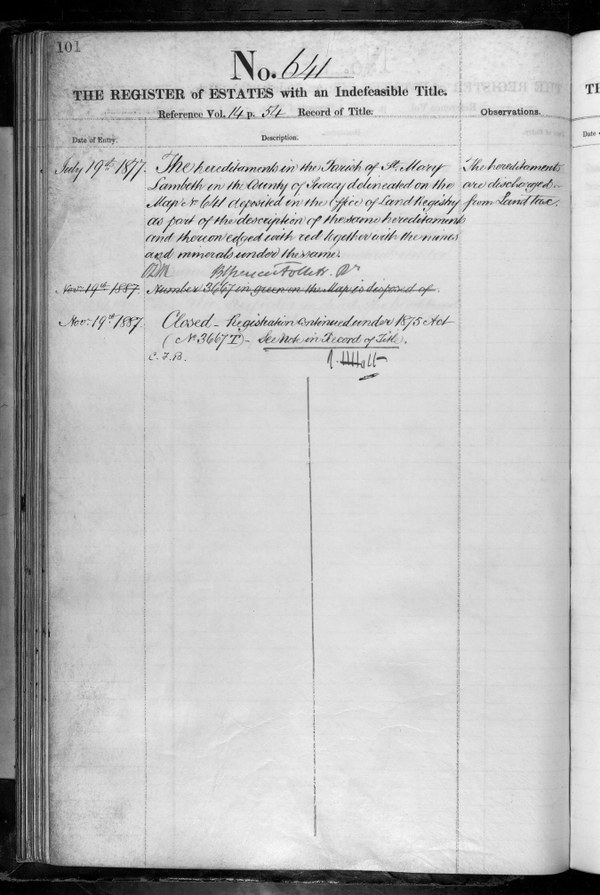 101
No. 641
THE REGISTER of ESTATES with an Indefeasible Title.
Reference Vol. 14 p. 54 Record of Title.
Observations.
Date of Entry.
Description.
July 19th 1877. The hereditaments in the Parish of St. Mary
Lambeth in the County of Surrey delineated on the
Map No 641 deposited in the Office of Land Registry
as part of the description of the same hereditaments
and thereon edged with red together with the mines
and minerals under the same.
The hereditaments
are discharged
from Land tax.
Nov: 19th 1887. Number 3667 in green on the Map is disposed of.
Nov: 19th 1887. Closed – Registration continued under 1875 Act
(No 3667 T) – See Note in Record of Title.
C.F.B.